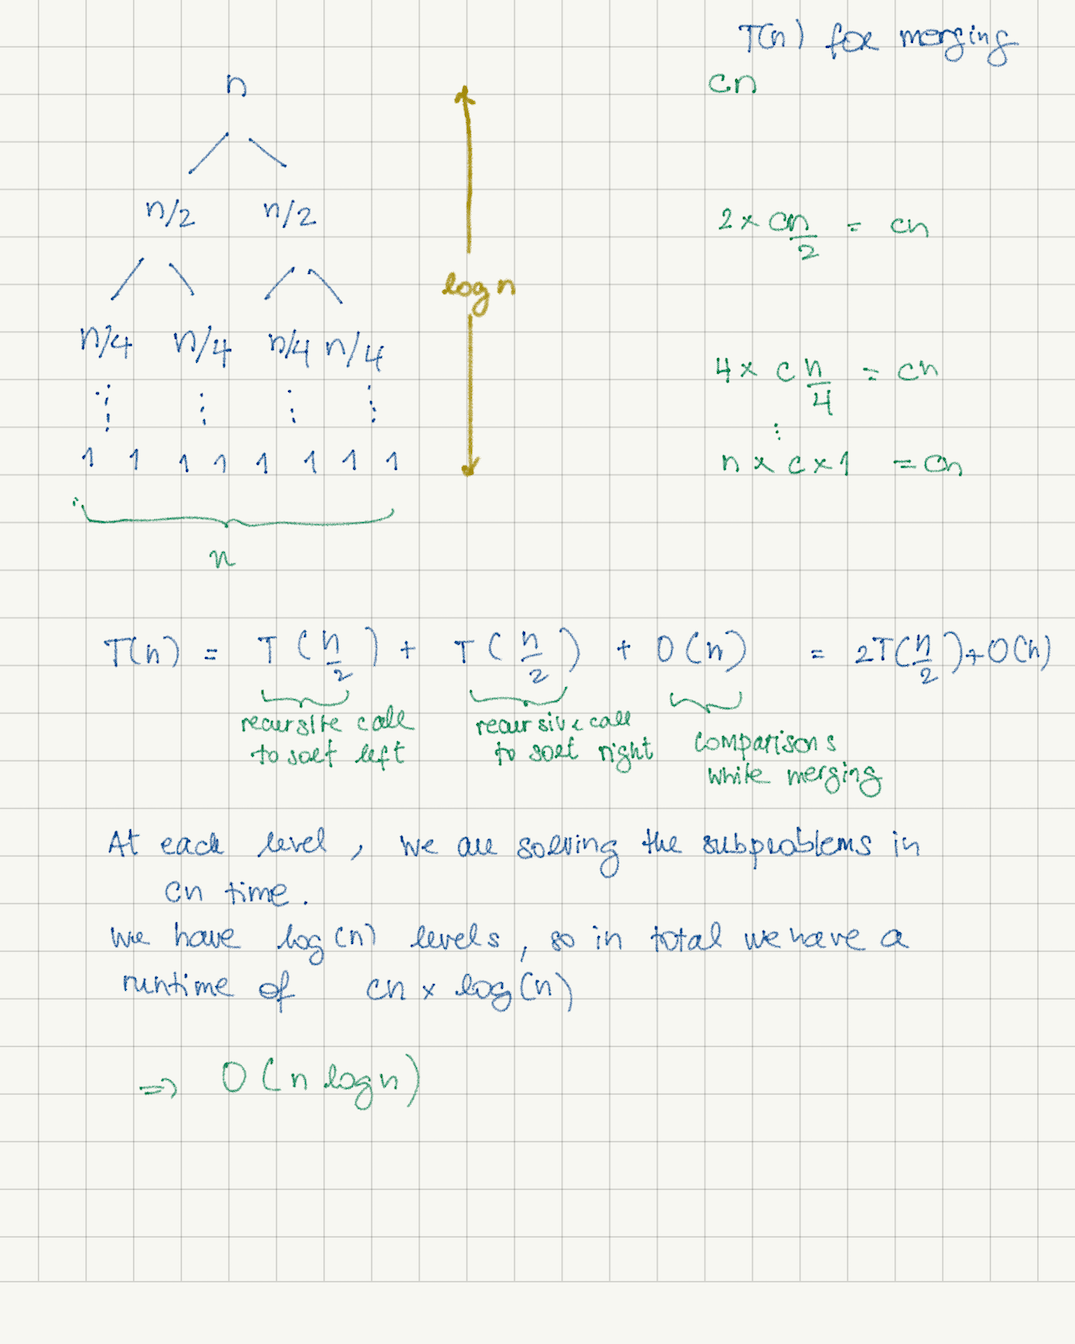 T(n) for merging
n
cn
n/2 n/2
2 × cn/2 = cn
log n
n/4 n/4 n/4 n/4
4 × c n/4 = cn
1 1 1 1 1 1 1 1
n × c × 1 = cn
n
T(n) = T(n/2) + T(n/2) + O(n) = 2T(n/2) + O(n)
recursive call to sort left
recursive call to sort right
comparisons while merging
At each level, we are solving the subproblems in
cn time.
We have log(n) levels, so in total we have a
runtime of cn × log(n)
⇒ O(n log n)